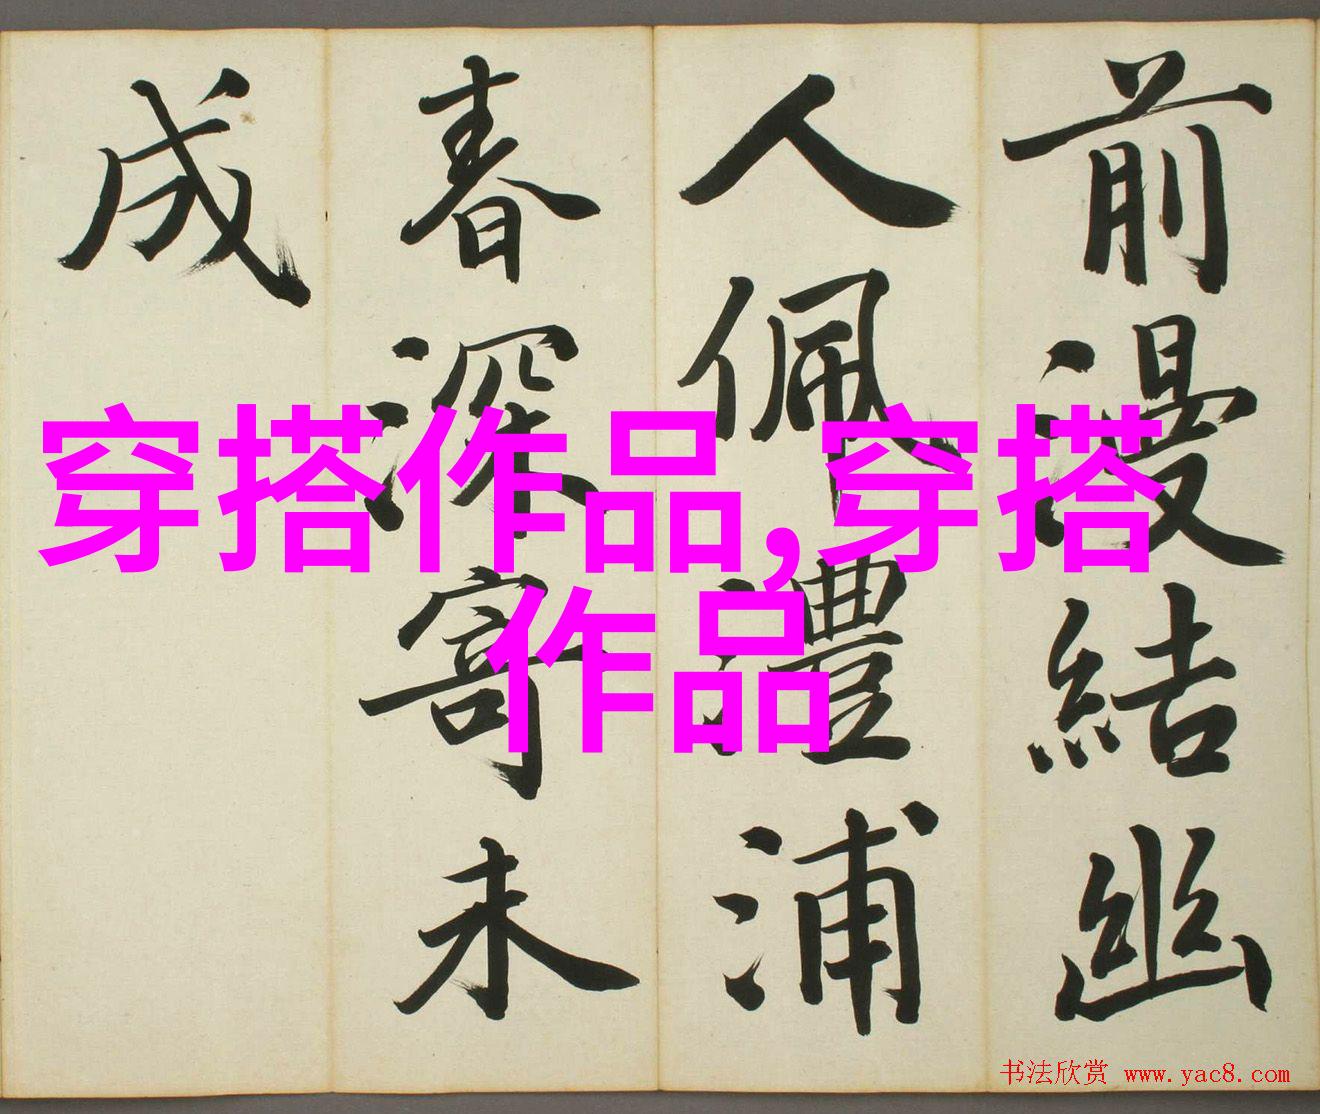 前漫結幽
人佩澧浦
春深寄未
成
穿搭作品,穿搭
作品
书法欣赏 www.yac8.com